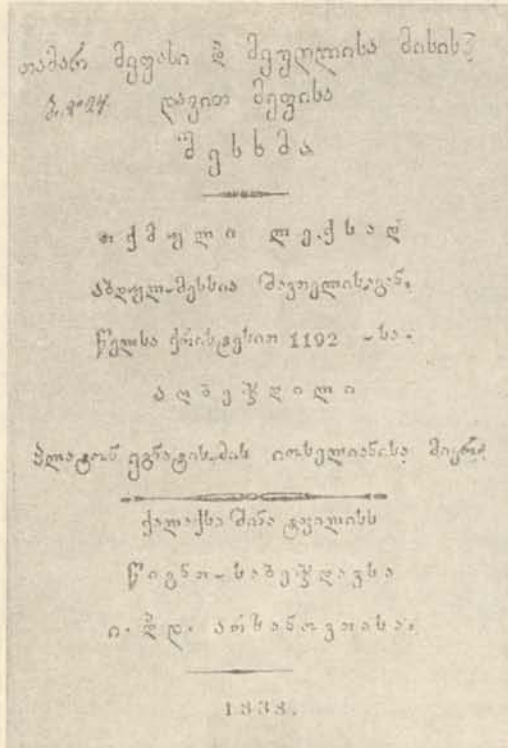 თამარ მეფისი და მეუღლისა მისის
დავით მეფისა
შესხმა
თქმული ლექსად
აბდულ-მესსია შავთელისაგან.
წელსა ქრისტესით 1192 -სა.
აღბეჭდილი
პლატონ ეგნატის-ძის იოსელიანისა მიერ.
ქალაქსა შინა ტფილისს
წიგნთ-საბეჭდავსა
ი. და დ. არსანოვთასა.
1838.